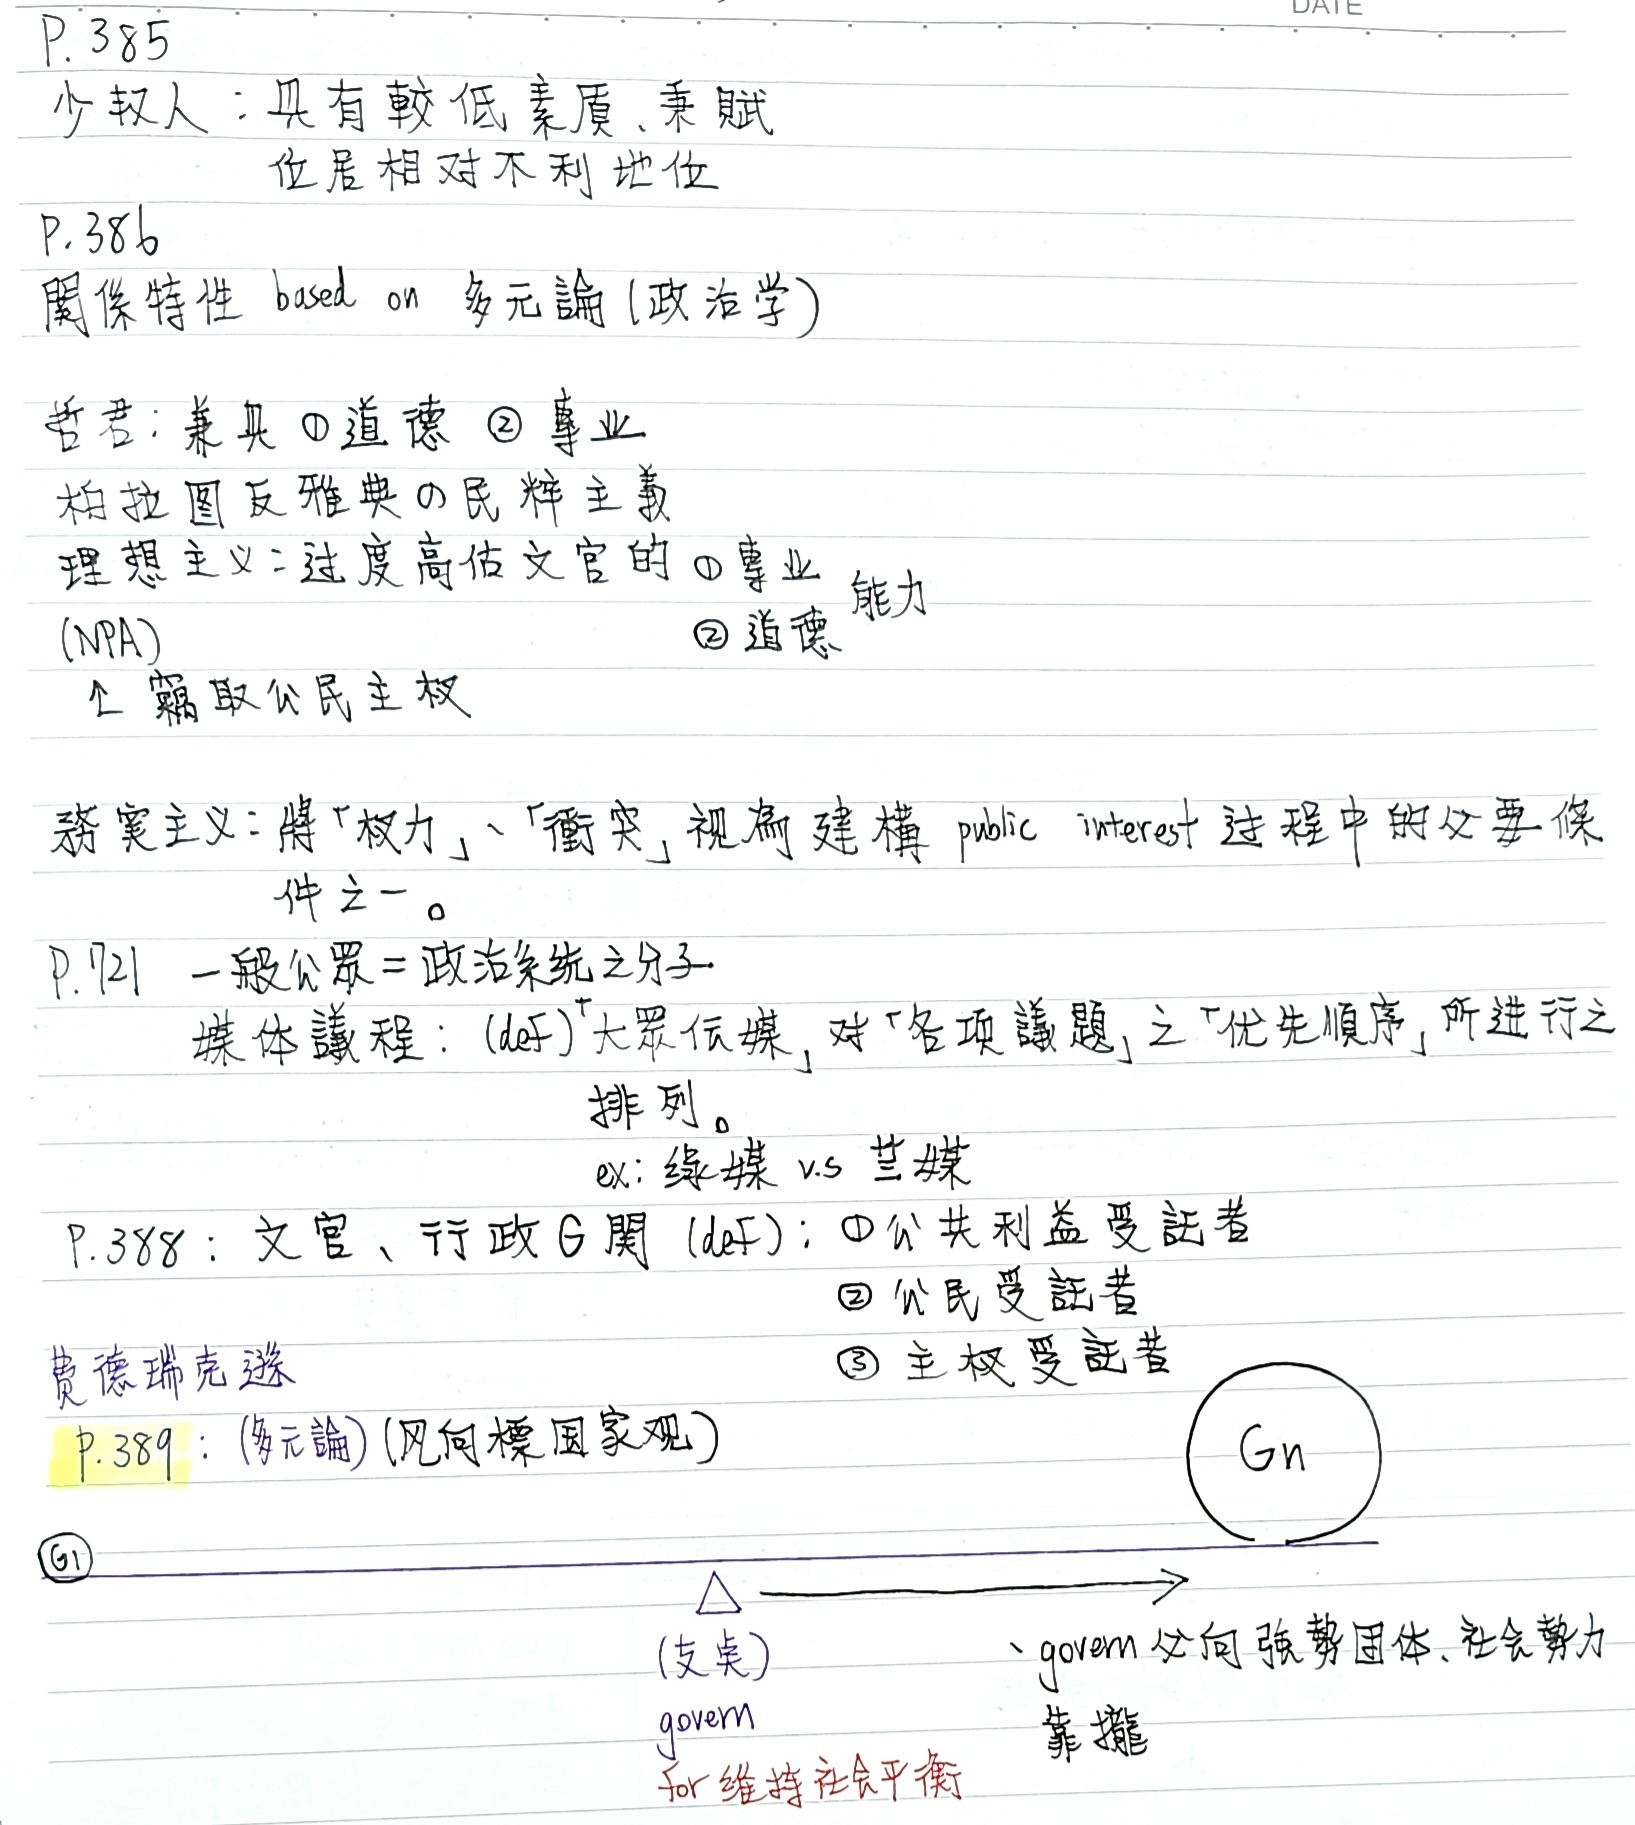 DATE
P.385
少权人：具有較低素質、秉賦
位居相对不利地位
P.386
関係特性 based on 多元論(政治学)
哲君：兼具①道德 ②專业
柏拉图反雅典の民粹主義
理想主义：过度高估文官的①專业
②道德 能力
(NPA)
↑ 竊取公民主权
務实主义：將「权力」、「衝突」視為建構 public interest 过程中的必要條
件之一。
P.721 一般公眾=政治系統之分子
媒体議程：(def)「大眾伝媒」对「各項議題」之「优先順序」所進行之
排列。
ex: 綠媒 v.s 兰媒
P.388：文官、行政G関 (def)：①公共利益受託者
②公民受託者
③主权受託者
費德瑞克遜
P.389：(多元論)(风向標国家观)
Gn
G1
(支点)
、govern 必向強勢团体、社会勢力
govern
靠攏
for 維持社会平衡